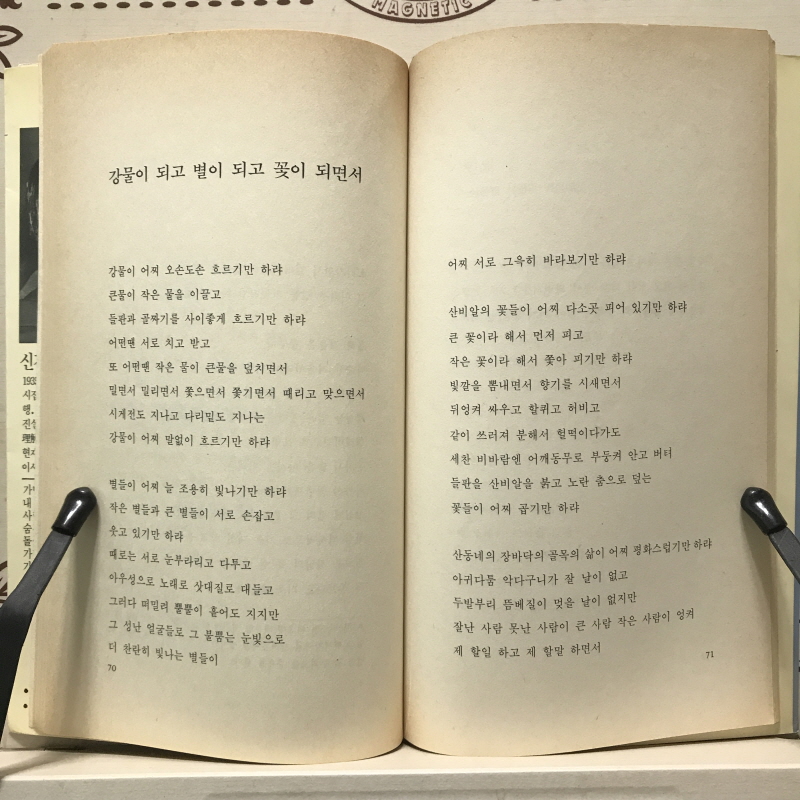 MAGNETIC
강물이 되고 별이 되고 꽃이 되면서
강물이 어찌 오손도손 흐르기만 하랴
큰물이 작은 물을 이끌고
들판과 골짜기를 사이좋게 흐르기만 하랴
어떤땐 서로 치고 받고
또 어떤땐 작은 물이 큰물을 덮치면서
밀면서 밀리면서 쫓으면서 쫓기면서 때리고 맞으면서
시게전도 지나고 다리밑도 지나는
강물이 어찌 말없이 흐르기만 하랴
별들이 어찌 늘 조용히 빛나기만 하랴
작은 별들과 큰 별들이 서로 손잡고
웃고 있기만 하랴
때로는 서로 눈부라리고 다투고
아우성으로 노래로 삿대질로 대들고
그러다 떠밀려 뿔뿔이 흩어도 지지만
그 성난 얼굴들로 그 불뿜는 눈빛으로
더 찬란히 빛나는 별들이
70
어찌 서로 그윽히 바라보기만 하랴
산비알의 꽃들이 어찌 다소곳 피어 있기만 하랴
큰 꽃이라 해서 먼저 피고
작은 꽃이라 해서 쫓아 피기만 하랴
빛깔을 뽐내면서 향기를 시새면서
뒤엉켜 싸우고 할퀴고 허비고
같이 쓰러져 분해서 헐떡이다가도
세찬 비바람엔 어깨동무로 부둥켜 안고 버텨
들판을 산비알을 붉고 노란 춤으로 덮는
꽃들이 어찌 곱기만 하랴
산동네의 장바닥의 골목의 삶이 어찌 평화스럽기만 하랴
아귀다툼 악다구니가 잘 날이 없고
두발부리 뜸베질이 멎을 날이 없지만
잘난 사람 못난 사람이 큰 사람 작은 사람이 엉켜
제 할일 하고 제 할말 하면서
71